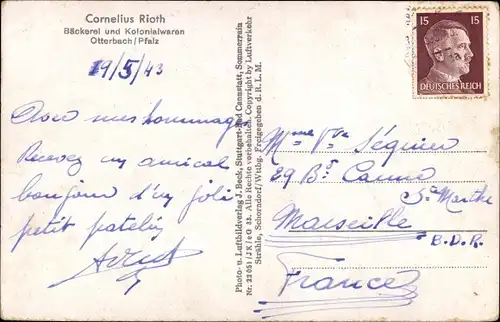 Cornelius Rioth
Bäckerei und Kolonialwaren
Otterbach/Pfalz
19/5/43
Avec mes hommages
Recevez un amical
bonjour d'un joli
petit
Photo- u. Luftbildverlag J. Beck, Stuttgart-Bad Cannstatt, Sommerrain
Nr. 22051/JK/eG 33. Alle Rechte vorbehalten. Copyright by Luftverkehr
Strähle, Schorndorf/Wttbg. Freigegeben d. R. L. M.
15 15
DEUTSCHES REICH
Mme Vve Séguier
29 Bd
Ste Marthe
Marseille
B.D.R.
France